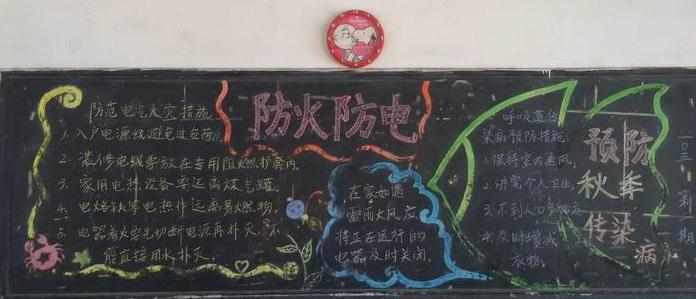 防范电气火灾措施
1、入户电源线避免过负荷
2、装修电线要放在专用阻燃护套内
3、家用电热设备要远离煤气罐
4、电烙铁等电热件远离易燃物
5、电器着火要先切断电源再扑灭，不
能直接用水扑灭。
防火防电
在家如遇
雷雨大风 应
将正在运行的
电器及时关闭
呼吸道传
染病预防措施
1、保持室内通风
2、讲究个人卫生
3、不到人口
4、及时增减
衣物
预防
秋季
传染
病